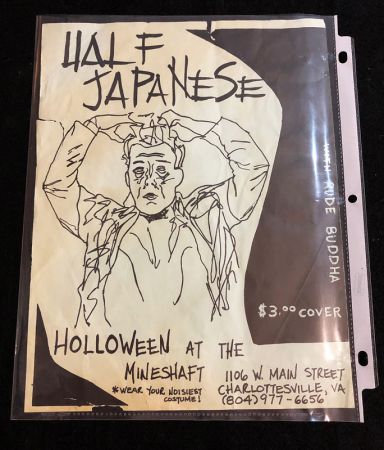 HALF
JAPANESE
WITH RUDE BUDDHA
$3.00 COVER
HOLLOWEEN AT THE
MINESHAFT
*WEAR YOUR NOISIEST
COSTUME!
1106 W. MAIN STREET
CHARLOTTESVILLE, VA
(804) 977-6656